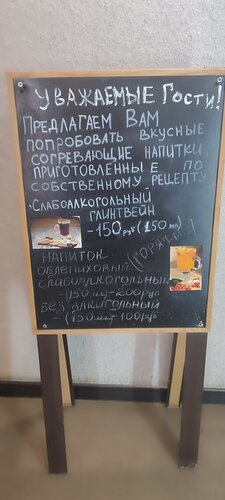 Уважаемые Гости!
Предлагаем Вам
попробовать вкусные
согревающие напитки,
приготовленные по
собственному рецепту
·Слабоалкогольный
глинтвейн
-150руб (150 мл)
Напиток
облепиховый (горячий)
слабоалкогольный
-(150 мл)-200руб
безалкогольный
-(150мл-100руб